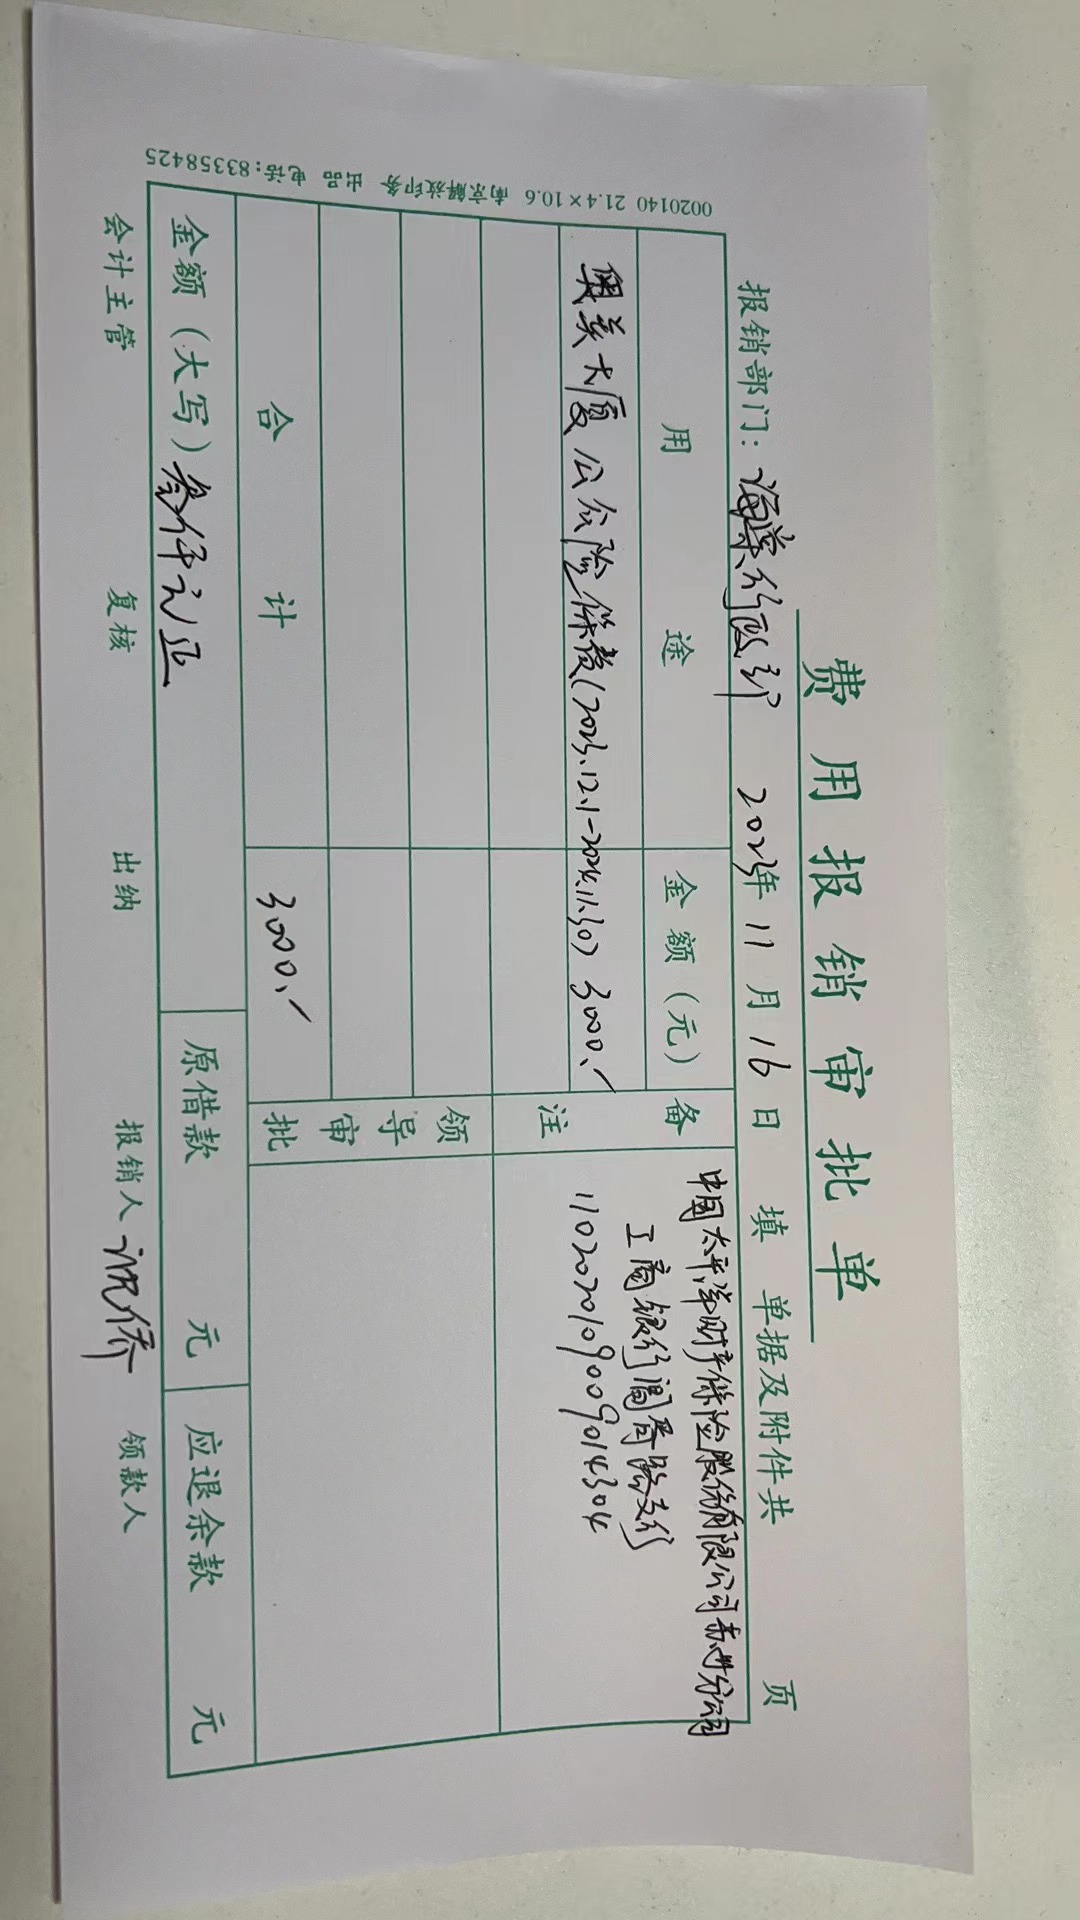 费用报销审批单
报销部门：海棠行政部 2023年11月16日 填 单据及附件共 页
用途 金额（元） 备注
奥美大厦公众险保费(2023.12.1-2024.11.30) 3000.
中国太平洋财产保险股份有限公司苏州分公司
工商银行阊胥路支行
1102020109009014304
领导审批
合计 3000.
金额（大写）叁仟元正 原借款 元 应退余款 元
会计主管 复核 出纳 报销人 领款人
0020140 21.4×10.6 南京解放印务 出品 电话:83358425